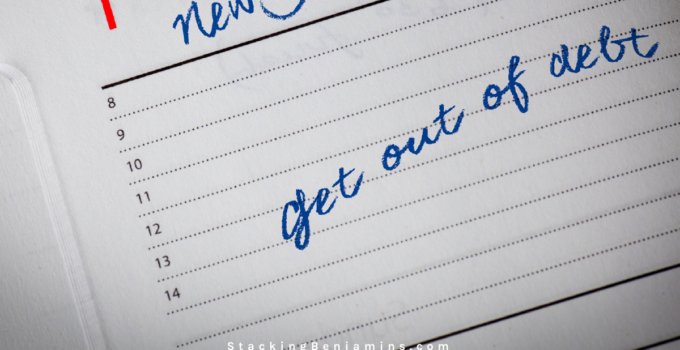 New
8
9
10
11
12
13
14
get out of debt
StackingBenjamins.com